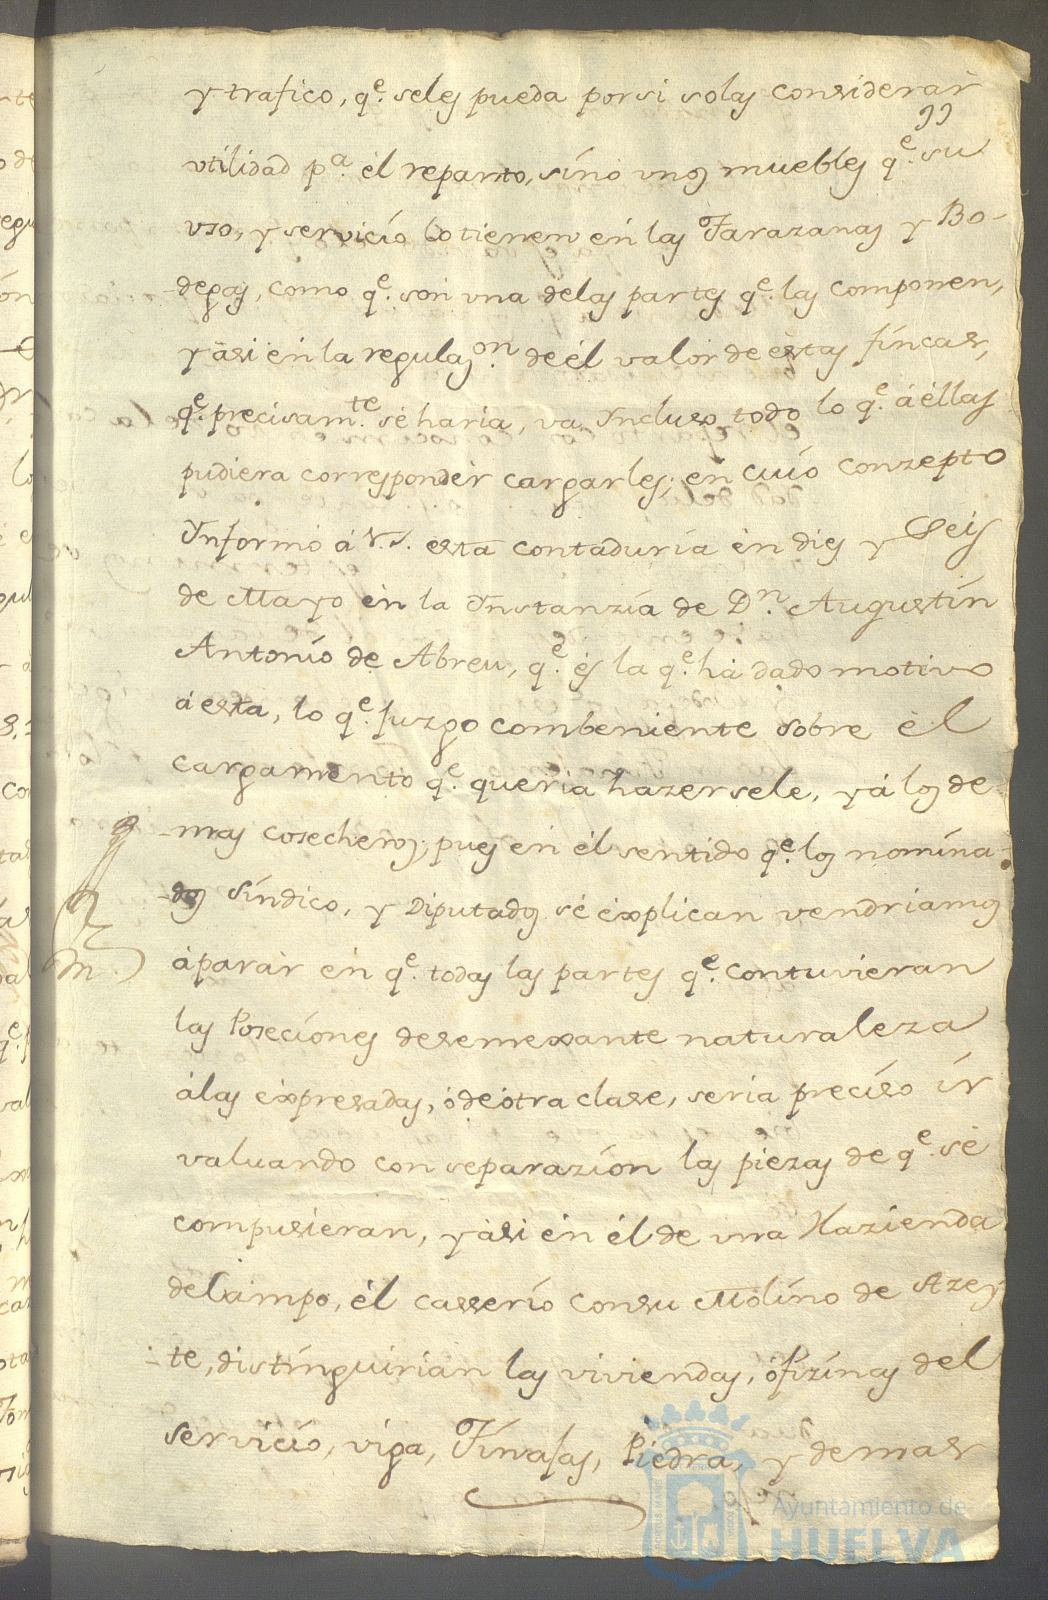 y trafico, qe. seles pueda por si solas considerar
99
vtilidad pa. él reparto, sino vnos muebles qe. su
vso, y servicio lo tienen én las Tarazanas y Bo-
degas, como qe. son vna delas partes qe. las componen,
y ási én la regulazon. de él valor de éstas fincas,
qe. precisamte. sé haria, va Yncluso todo lo qe. á éllas
pudiera corresponder cargarles; én cuio conzepto
Ynformó á V.S. esta contaduria én dies y Seis
de Mayo én la Ynstanzia de Dn. Augustin
Antonio de Abreu, qe. és la qe. há dado motivo
á esta, lo qe. juzgo combeniente sobre él
cargamento qe. queria hazersele, y á los de-
mas cosecheros; pues én él sentido qe. los nomina-
dos sindico, y Diputados sé éxplican vendriamos
áparar én qe. todas las partes qe. contuvieran
las Poseciones desemexante naturaleza
álas éxpresadas, ó de ótra clase, seria preciso ir
valuando con separazion las piezas de qe. sé
compusieran, y ási én él de vna Hazienda
de Campo, él casserio consu Molino de Azey-
te, distinguirian las viviendas, ófizinas del
servicio, viga, Tinajas, Piedra, y demas
Ayuntamiento de
HUELVA